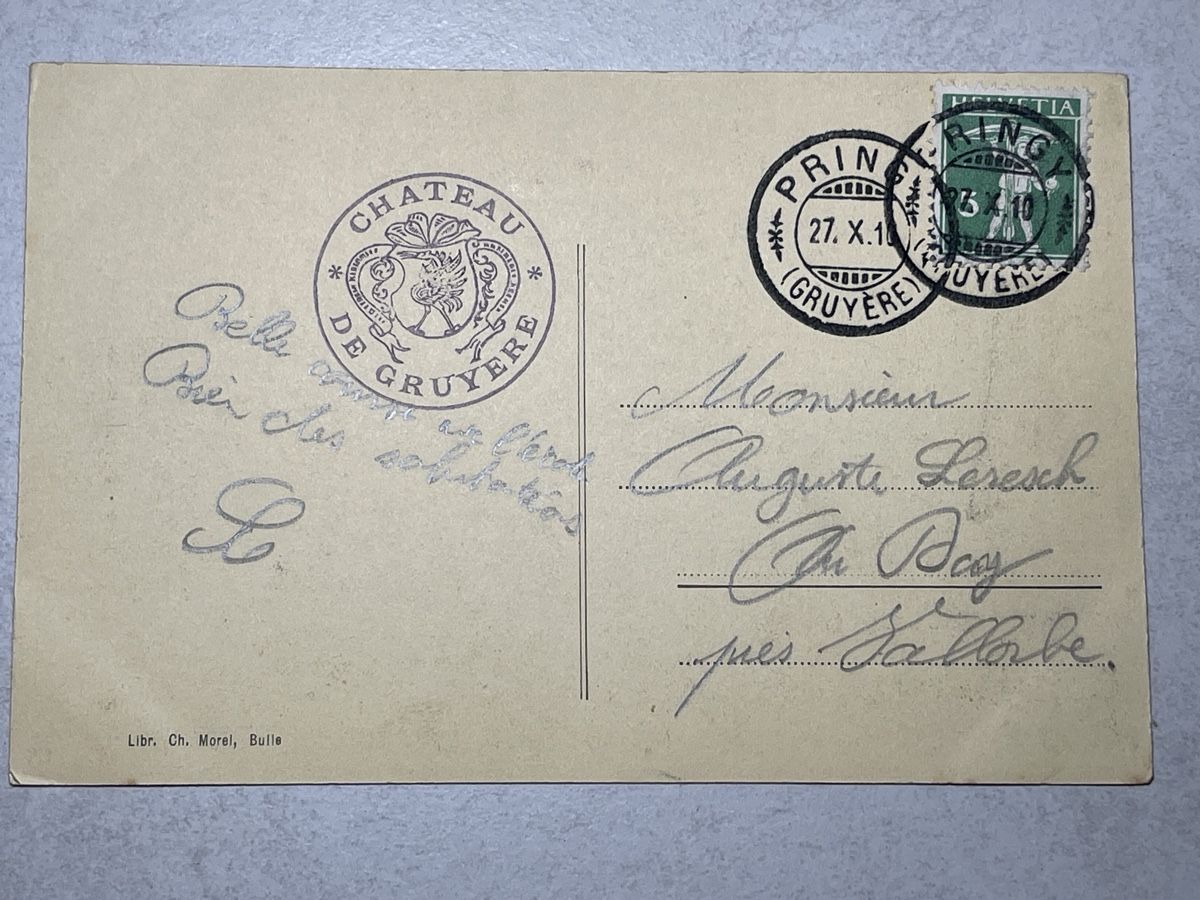 HELVETIA
5
PRINGY
27. X. 10
(GRUYÈRE)
PRINGY
27. X. 10
(GRUYÈRE)
CHATEAU
DE GRUYERE
Belle course
Bien des salutations
Monsieur
Auguste
Au Day
près Vallorbe.
Libr. Ch. Morel, Bulle